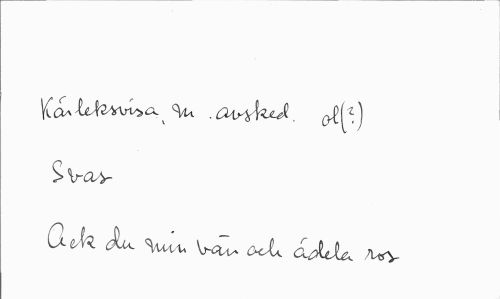 Kärleksvisa, m. avsked. ol(?)
Svar
Ack du min vän och ädela ros